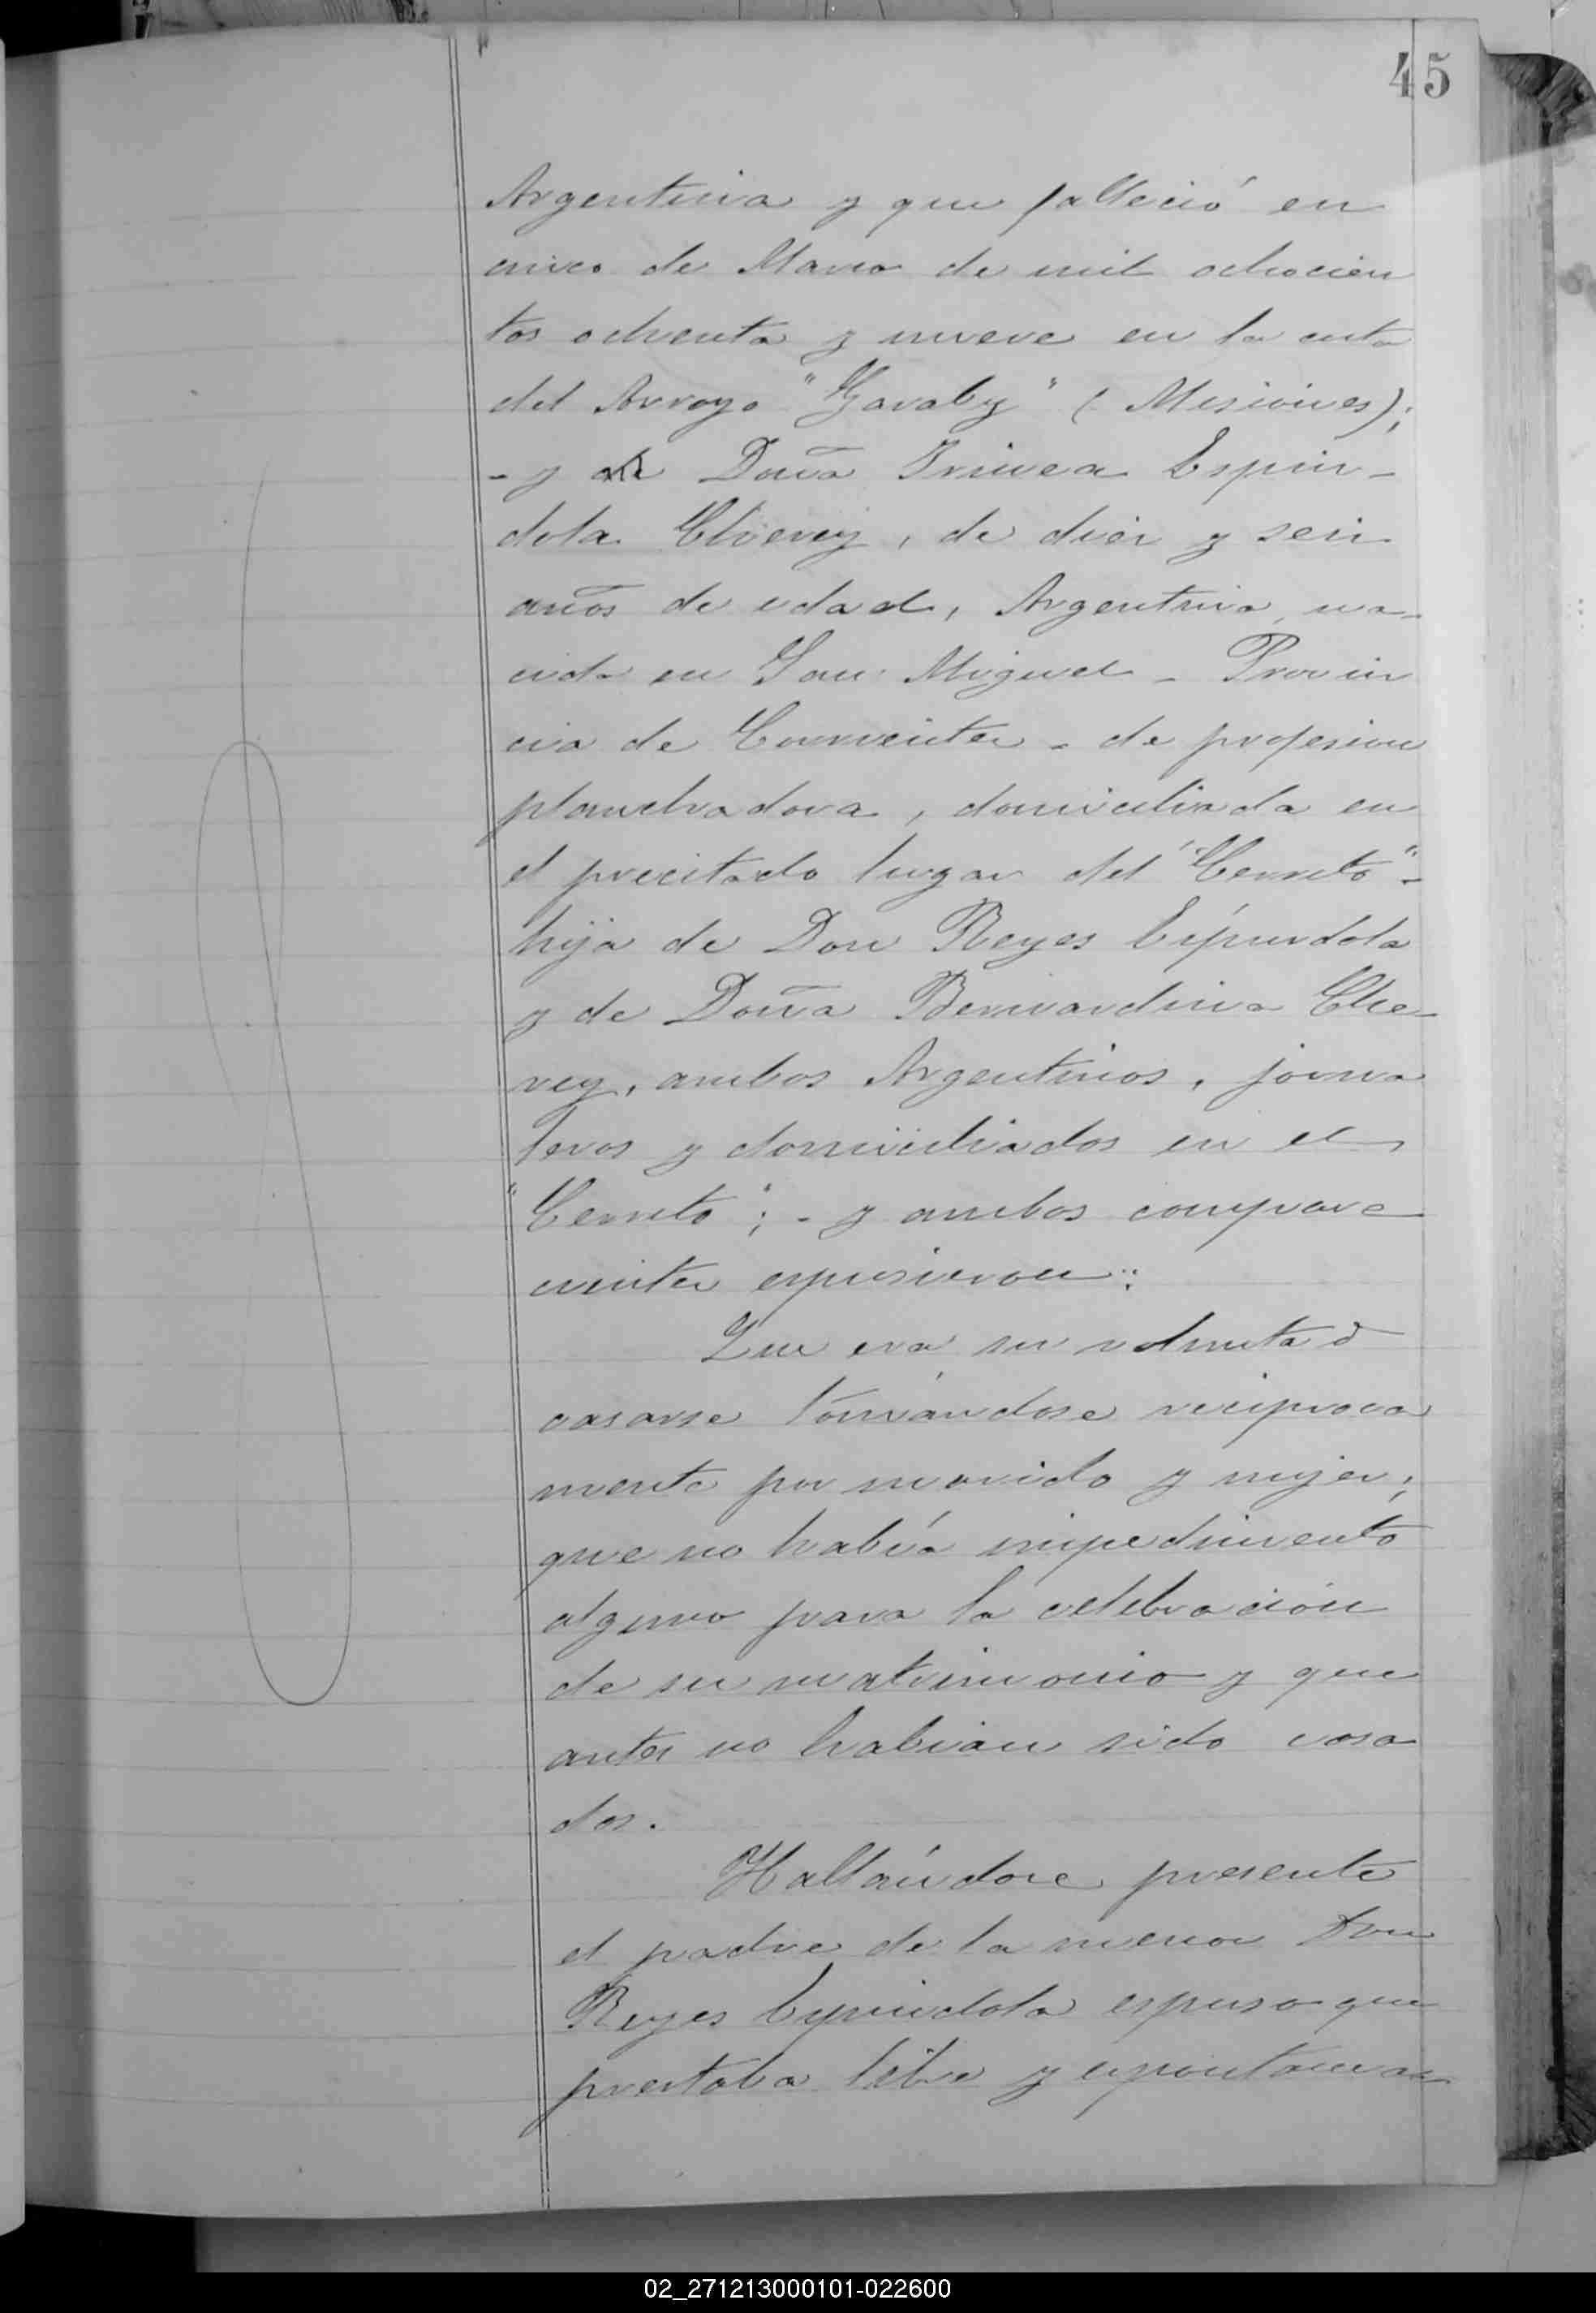 45
Argentina y que falleció en
cinco de Marzo de mil ochocien
tos ochenta y nueve en la costa
del Arroyo "Garaby" (Misiones);
- y Doña Irinea Espin-
dola Cheverry, de diez y seis
años de edad, Argentina, na-
cida en San Miguel - Provin
cia de Corrientes - de profesion
planchadora, domiciliada en
el precitado lugar del "Cerrito" -
hija de Don Reyes Espindola
y de Doña Bernardina Che-
rey, ambos Argentinos, jorna
leros y domiciliados en el
"Cerrito"; - y ambos compare
cientes espusieron:
Que era su voluntad
casarse tomándose reciproca
mente por marido y mujer;
que no había impedimento
alguno para la celebración
de su matrimonio y que
antes no habian sido casa
dos.
Hallándose presente
el padre de la menor Don
Reyes Espindola espuso que
prestaba libre y espontanea-
02_271213000101-022600